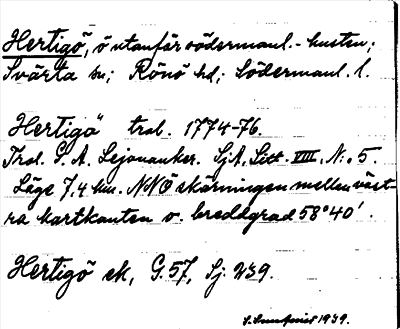 Hertigö, ö utanför södermanl.-kusten;
Svärta sn; Rönö hd; Södermanl. l.
"Hertigö" trol. 1774-76.
Trol. G. A. Lejonanker. SjA, Litt. VIII, N:o 5.
Läge 7,4 km. NNÖ skärningen mellan väst-
ra kartkanten o. breddgrad 58°40'.
Hertigö ek, G. 57, Sj: 239.
1939.